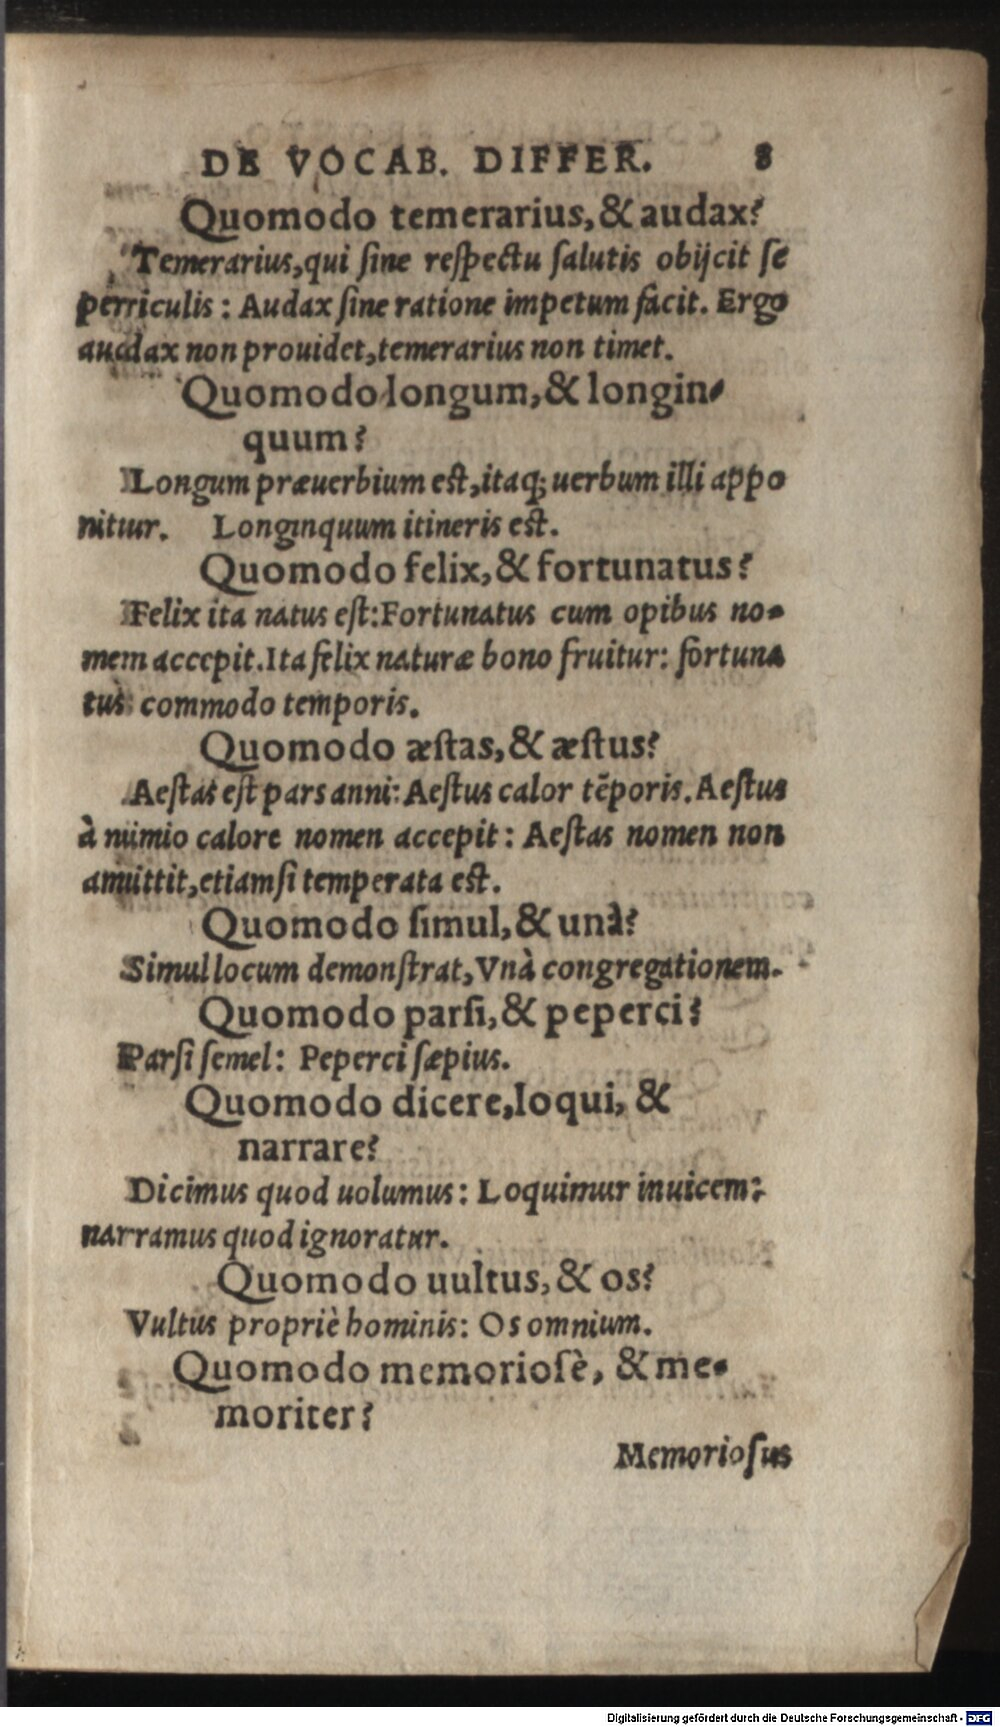 DE VOCAB. DIFFER. 8
Quomodo temerarius, & audax?
Temerarius, qui ſine reſpectu ſalutis obijcit ſe
perriculis: Audax ſine ratione impetum facit. Ergo
audax non prouidet, temerarius non timet.
Quomodo longum, & longin-
quum?
Longum præuerbium eſt, itaq; uerbum illi appo
nitur. Longinquum itineris eſt.
Quomodo felix, & fortunatus?
Felix ita natus eſt: Fortunatus cum opibus no-
mem accepit. Ita felix naturæ bono fruitur: fortuna
tus commodo temporis.
Quomodo æſtas, & æſtus?
Aeſtas eſt pars anni: Aeſtus calor tẽporis. Aeſtus
à nimio calore nomen accepit: Aeſtas nomen non
amittit, etiamſi temperata eſt.
Quomodo ſimul, & unà?
Simul locum demonſtrat, Vnà congregationem.
Quomodo parſi, & peperci?
Parſi ſemel: Peperci ſæpius.
Quomodo dicere, loqui, &
narrare?
Dicimus quod uolumus: Loquimur inuicem:
narramus quod ignoratur.
Quomodo uultus, & os?
Vultus propriè hominis: Os omnium.
Quomodo memorioſè, & me-
moriter?
Memorioſus
Digitalisierung gefördert durch die Deutsche Forschungsgemeinschaft - DFG